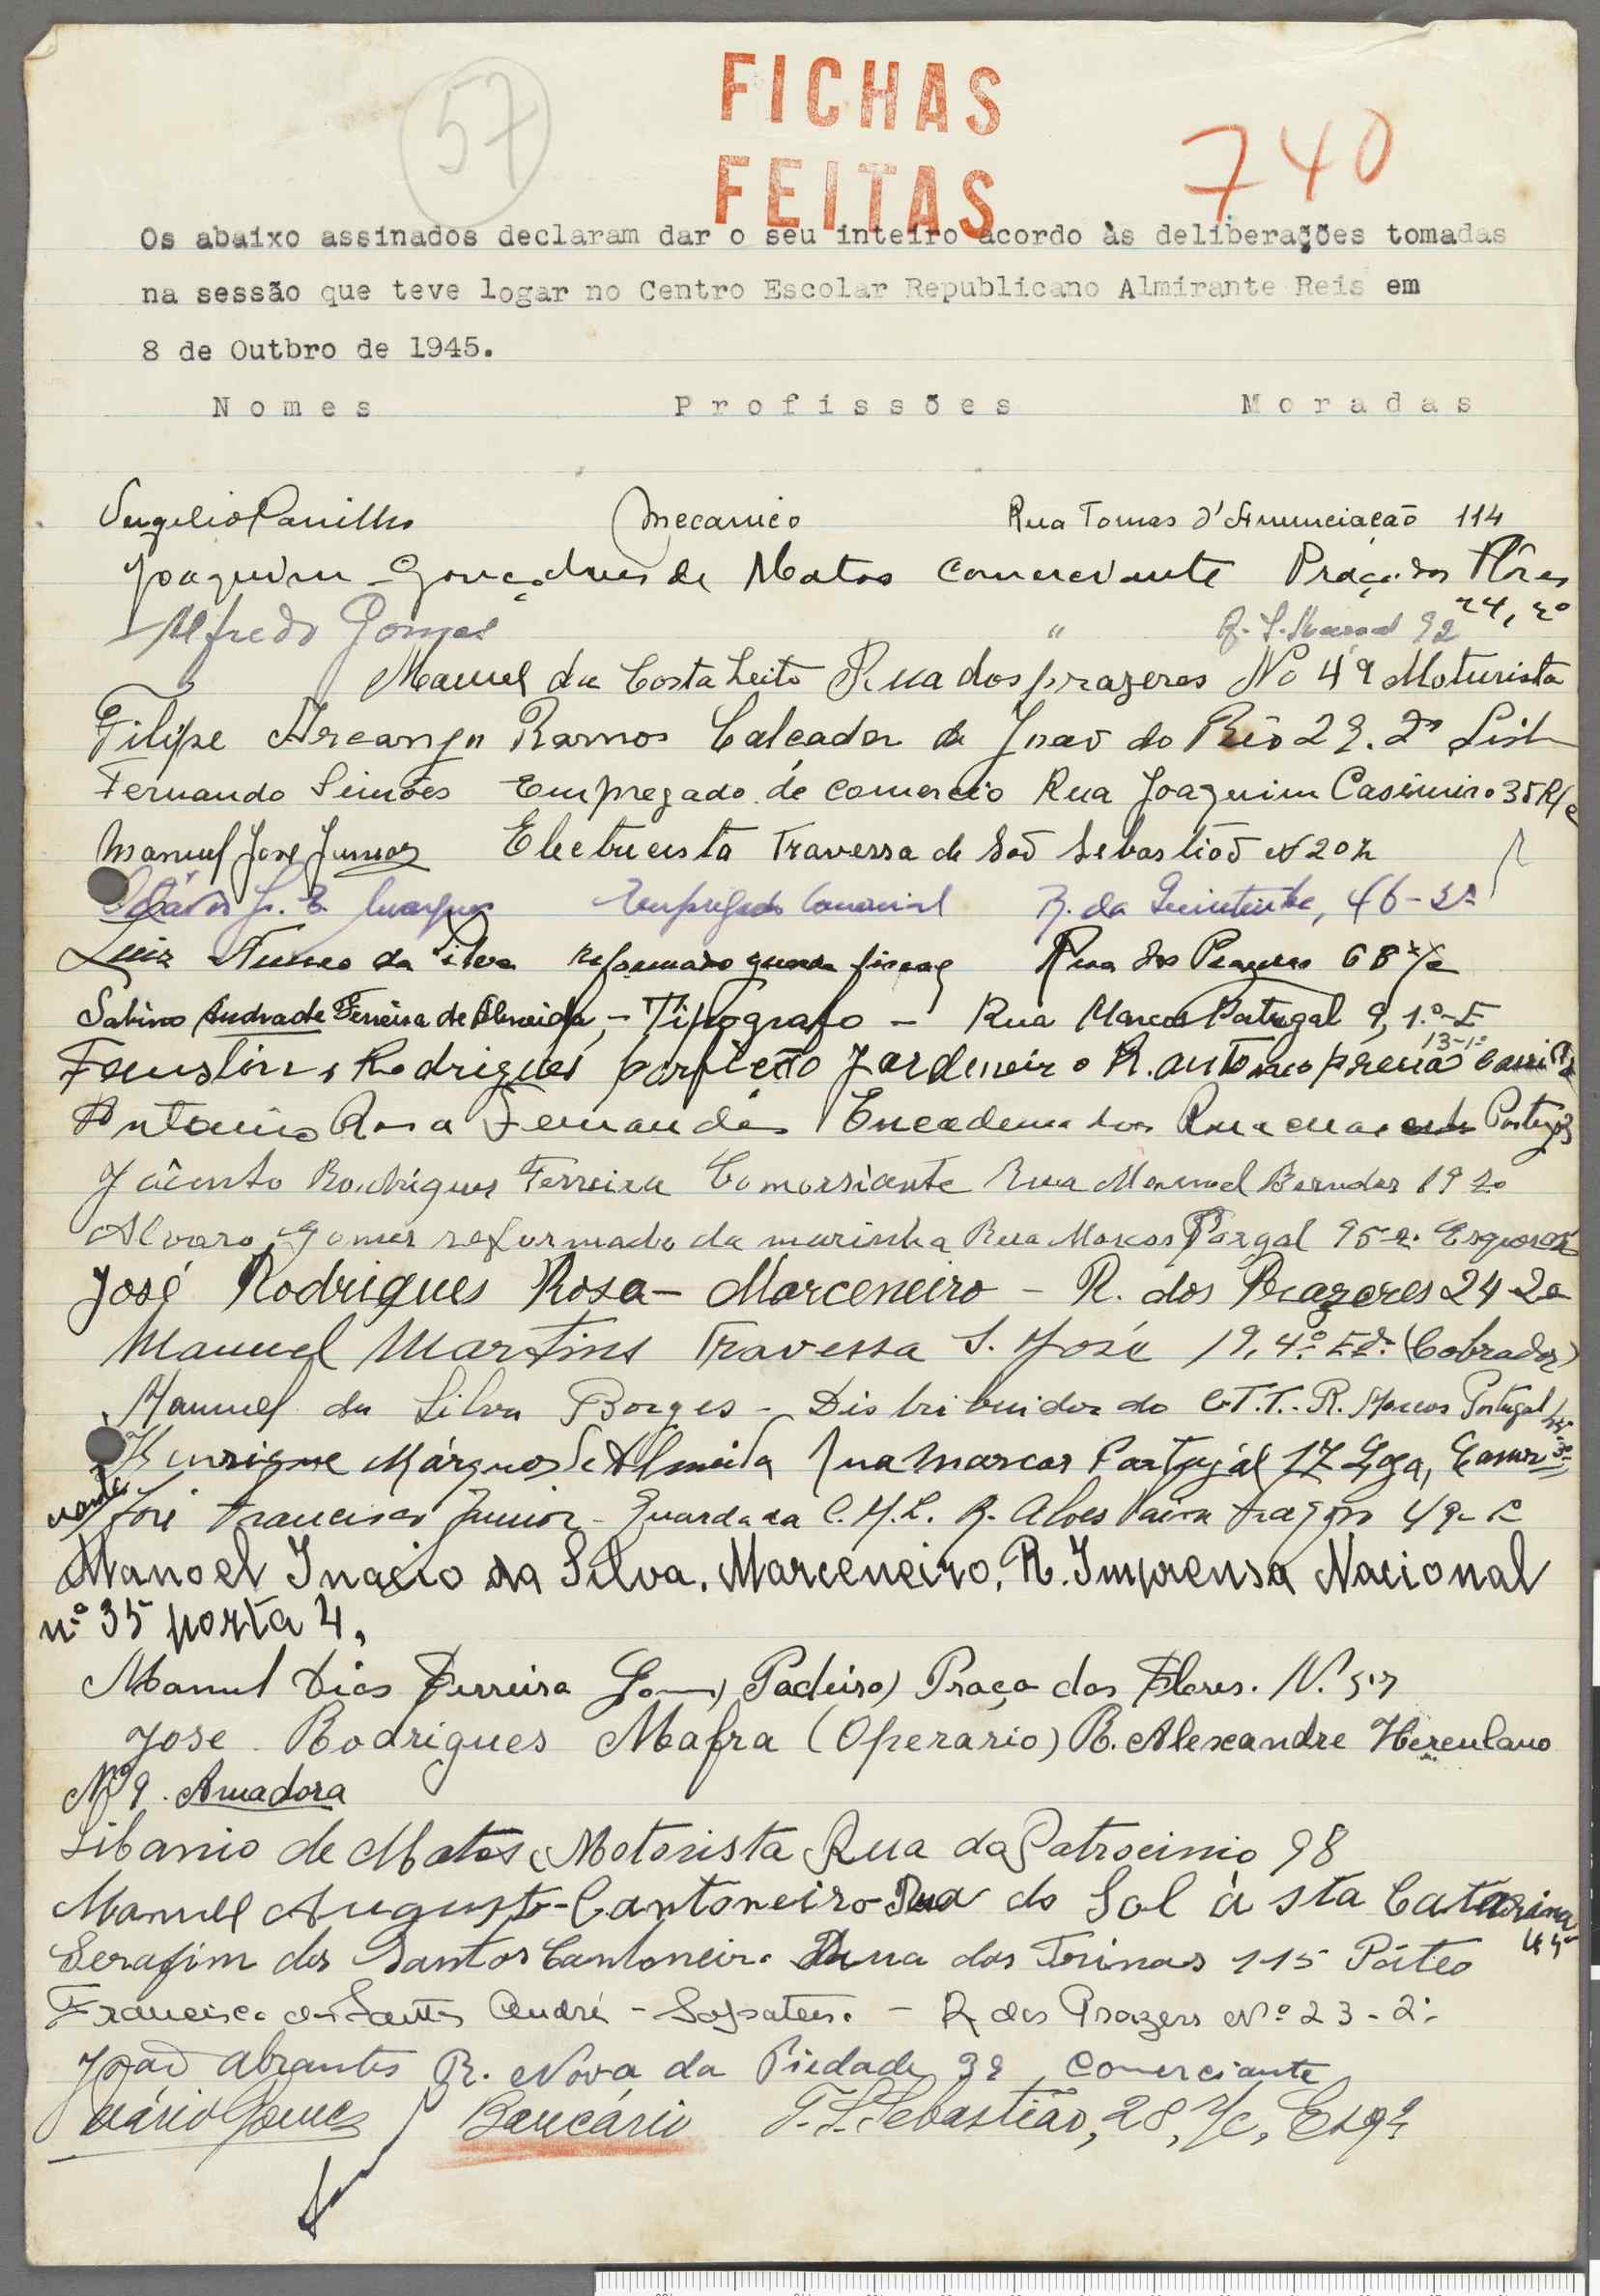 57
FICHAS
FEITAS
740
Os abaixo assinados declaram dar o seu inteiro acordo às deliberações tomadas
na sessão que teve logar no Centro Escolar Republicano Almirante Reis em
8 de Outbro de 1945.
Nomes Profissões Moradas
Mecanico Rua Tomas d'Anunciacão 114
Joaquim Gonçalves de Matos Comerciante Praça das Flôres
24, 2º
Alfredo Gomes " 92
Manuel da Costa Leito Rua dos prazeres No 49 Moturista
Filipe Arcanjo Ramos Calçada de João do Rio 29. 2º
Fernando Simões Empregado de comercio Rua Joaquim Casimiro 35 R/c
Manuel José Junior Electrecista Travessa de Saõ Sebastiaõ Nº 20
Empregado Comercial R. da Quintinha, 46-3º
Luiz Nunes da Silva Reformado guarda fiscal Rua dos Prazeres 68 r/c
Sabino Andrade Ferreira de Almeida, - Tipografo - Rua Marcos Portugal 9, 1.º-E
13-1º
Faustino Rodrigues Jardineiro R. antonio
Antonio Rosa Fernandes Encadernador Rua Portugal
Jacinto Rodrigues Ferreira Comersiante Rua Manuel Bernades 19 2º
Alvaro Gomes reformado da marinha Rua Marcos
José Rodrigues Rosa - Marceneiro - R. dos Prazeres 24 2º
Manuel Martins Travessa S. José 19, 4º (Cobrador)
Manuel da Silva Borges - Distribuidor do C.T.T. - R. Marcos Portugal
Henrique Márques de Almeida Rua Marcos Portugál 17 Loja,
José Francisco Junior - Guarda da C.M.L. R. Alves
Manoel Inacio da Silva. Marceneiro. R. Imprensa Nacional
nº 35 porta 4.
Manuel Dias Ferreira Padeiro) Praça das Flores. N.
Jose Rodrigues Mafra (Operario) R. Alexandre Herculano
Nº 9. Amadora
Libanio de Matos Motorista Rua do Patrocinio 98
Manuel Augusto - Cantoneiro - Rua do Sol à Sta Catarina
45
Serafim dos Santos Cantoneiro Rua das Trinas 115 Páteo
Francisco dos Santos André - Sapateiro - R. dos Prazeres Nº 23-2º
João Abrantes R. Nova da Piedade 32 Comerciante
Mário Gomes Bancário T. S. Sebastião, 28, r/c, Esqº